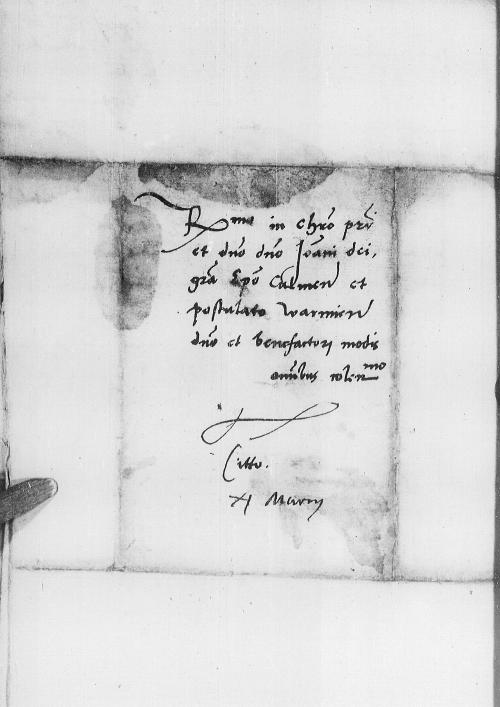 R^mo in chro pri
et dno dno Joani dei
gra Epo Culmen et
postulato Warmien
dno et benefactori modis
omibus colen^mo
Citto.